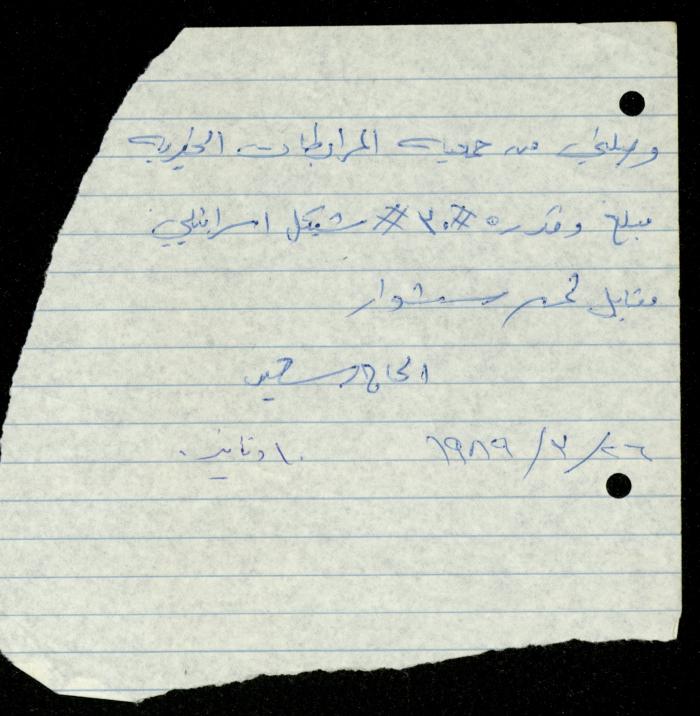 وصلني من جمعية المرابطات الخيرية
مبلغ وقدره #٣٠# شيكل اسرائيلي
مقابل مشوار
الحاج سعيد
٢٦/٣/١٩٨٩ ١٠ دنانير.